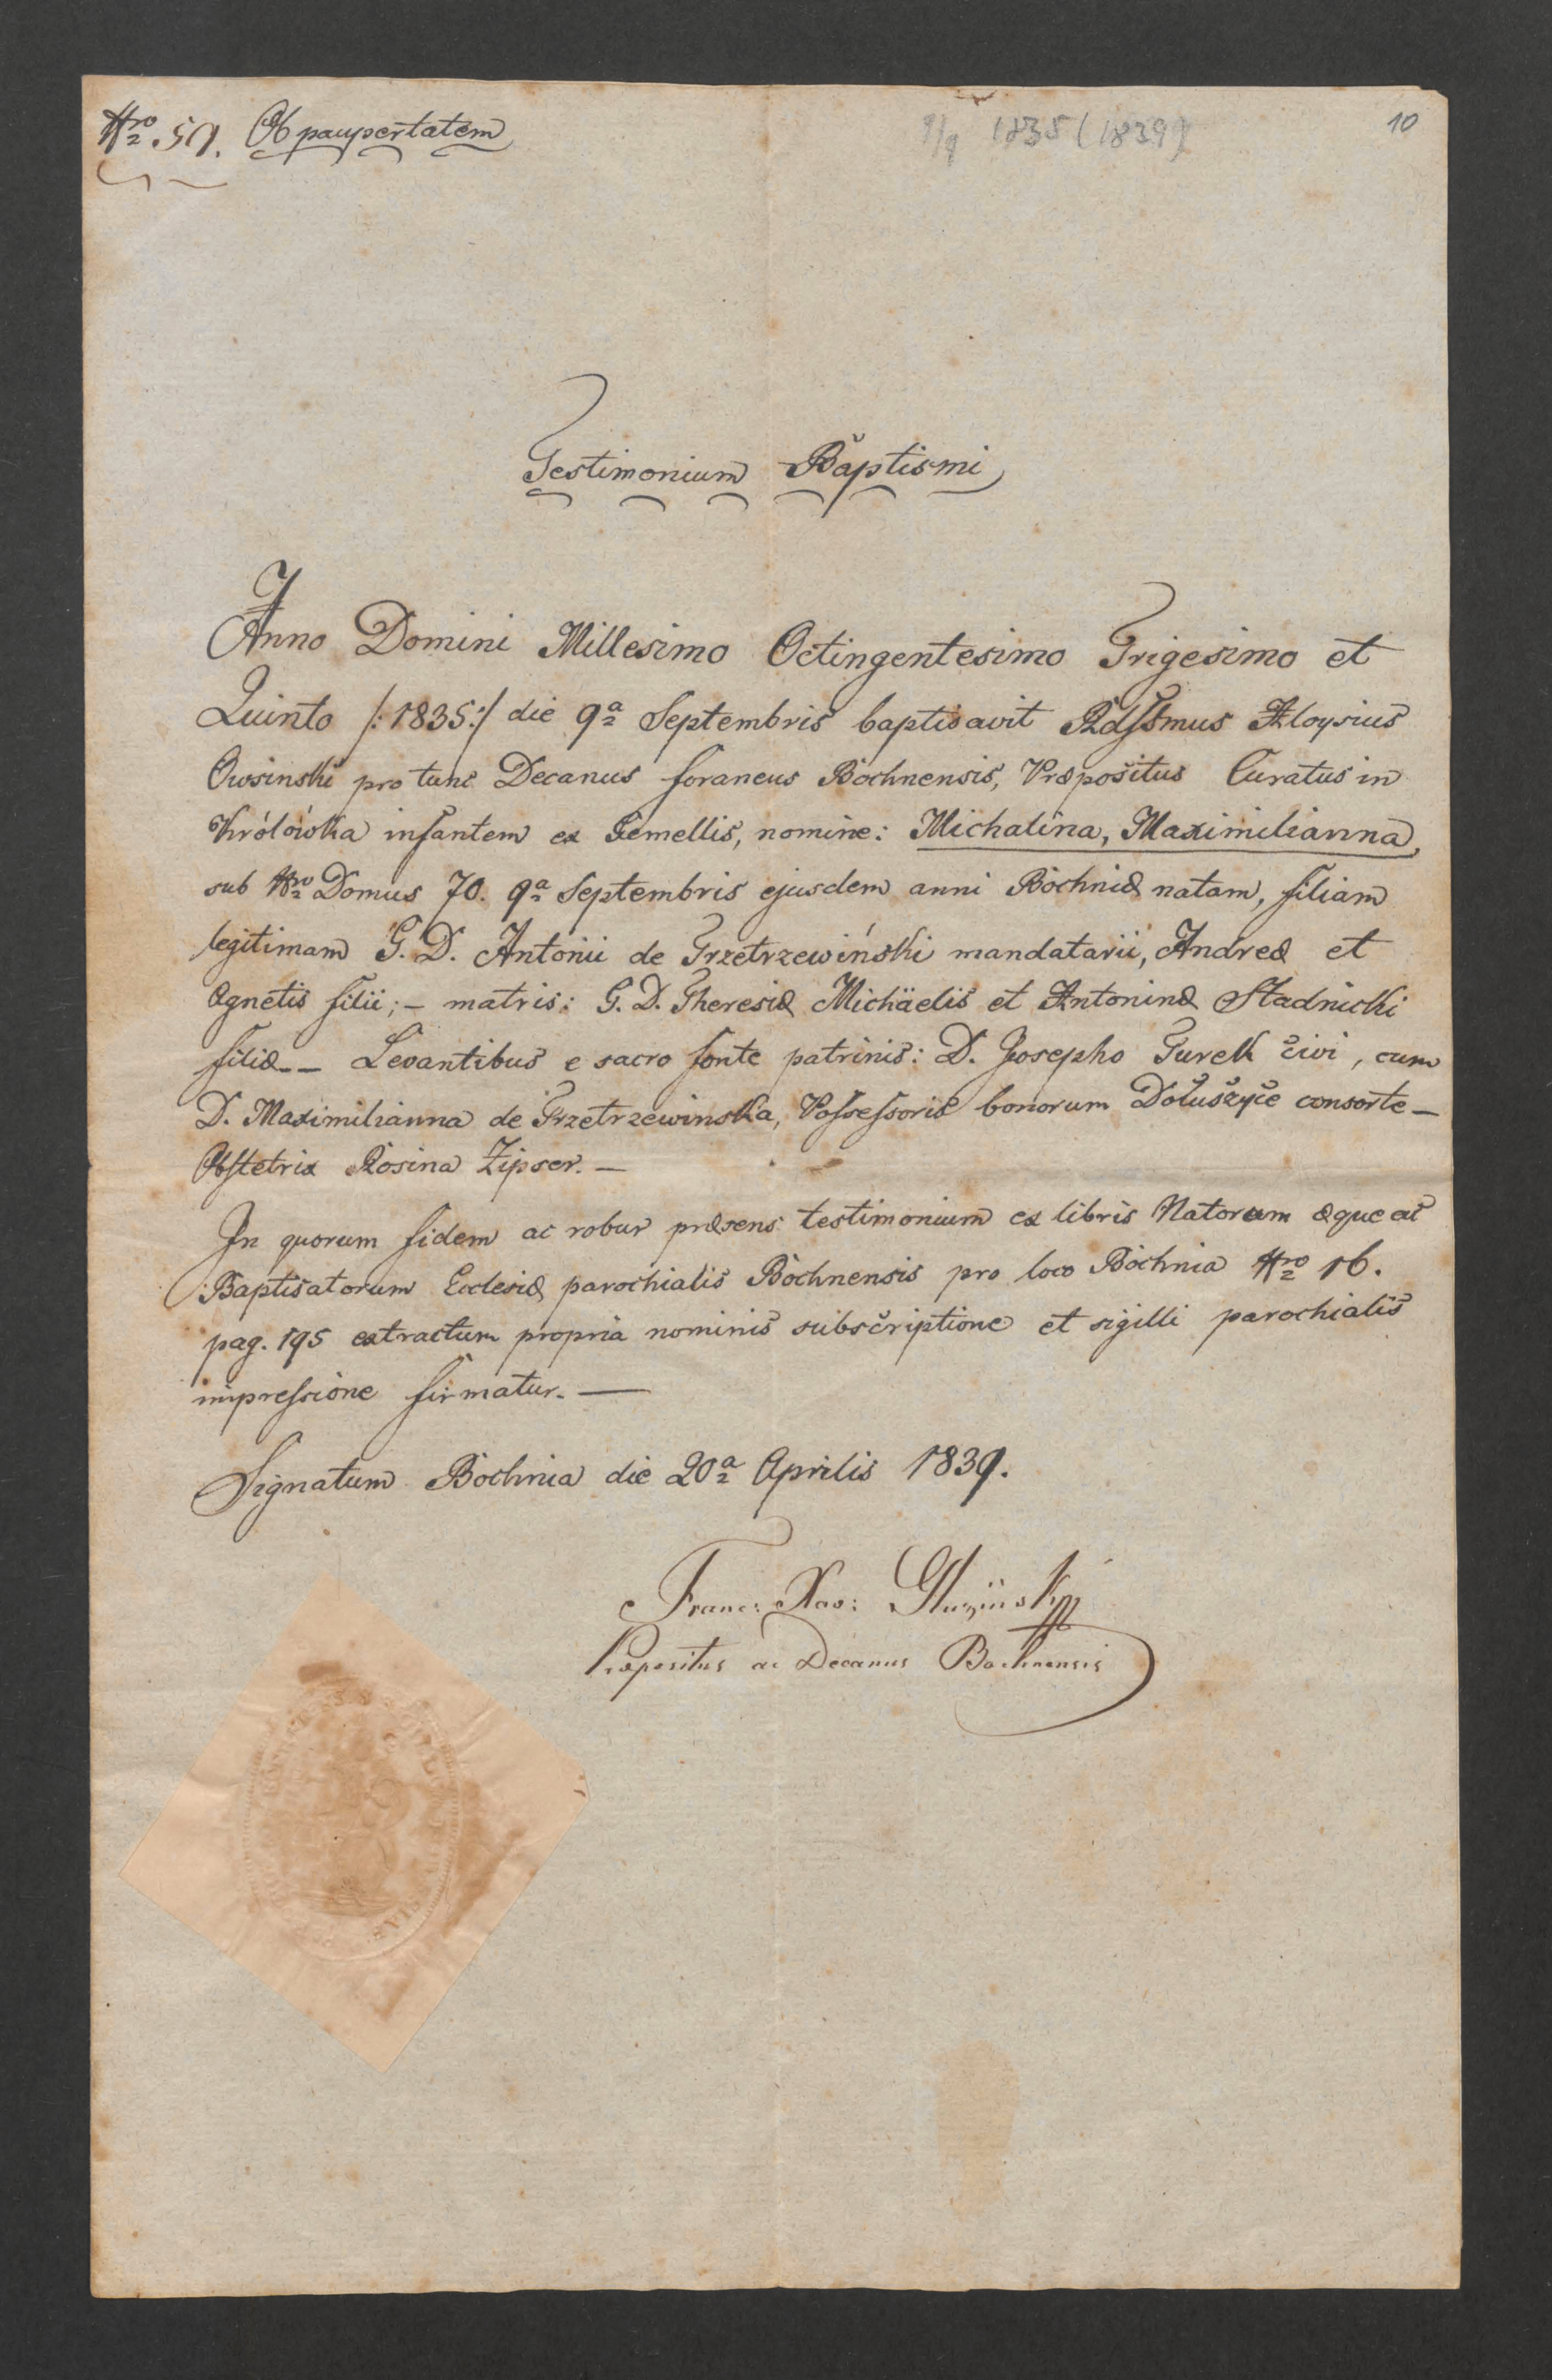 Nro 59. Ob paupertatem
9/9 1835 (1839)
10
Testimonium Baptismi
Anno Domini Millesimo Octingentesimo Trigesimo et
Quinto /:1835:/ die 9a Septembris baptisavit Rdssmus Aloysius
Owsinski pro tunc Decanus foraneus Bochnensis, Præpositus Curatus in
Królówka infantem ex Gemellis, nomine: Michalina, Maximilianna,
sub Nro Domus 70. 9a Septembris ejusdem anni Bochniæ natam, filiam
legitimam G. D. Antonii de Trzetrzewiński mandatarii, Andreæ et
Agnetis filii; - matris: G. D. Theresiæ Michäelis et Antoninæ Stadnicki
filiæ -- Levantibus e sacro fonte patrinis: D. Josepho Turek civi, cum
D. Maximilianna de Trzetrzewinska, Possessoris bonorum Dołuszyce consorte —
Obstetrix Rosina Zipser. —
In quorum fidem ac robur præsens testimonium ex libris Natorum æque ac
Baptisatorum Ecclesiæ parochialis Bochnensis pro loco Bochnia Nro 16.
pag. 195 extractum propria nominis subscriptione et sigilli parochialis
impressione firmatur. —
Signatum Bochnia die 20a Aprilis 1839.
Franc: Xav:
Præpositus ac Decanus Bochnensis